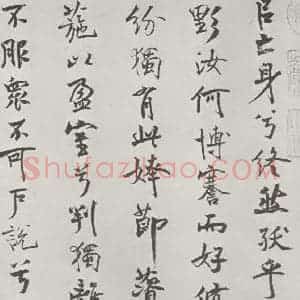 亡身兮終然殀乎
野汝何博謇而好脩
紛獨有此姱節薋
葹以盈室兮判獨離
不服眾不可戶說兮